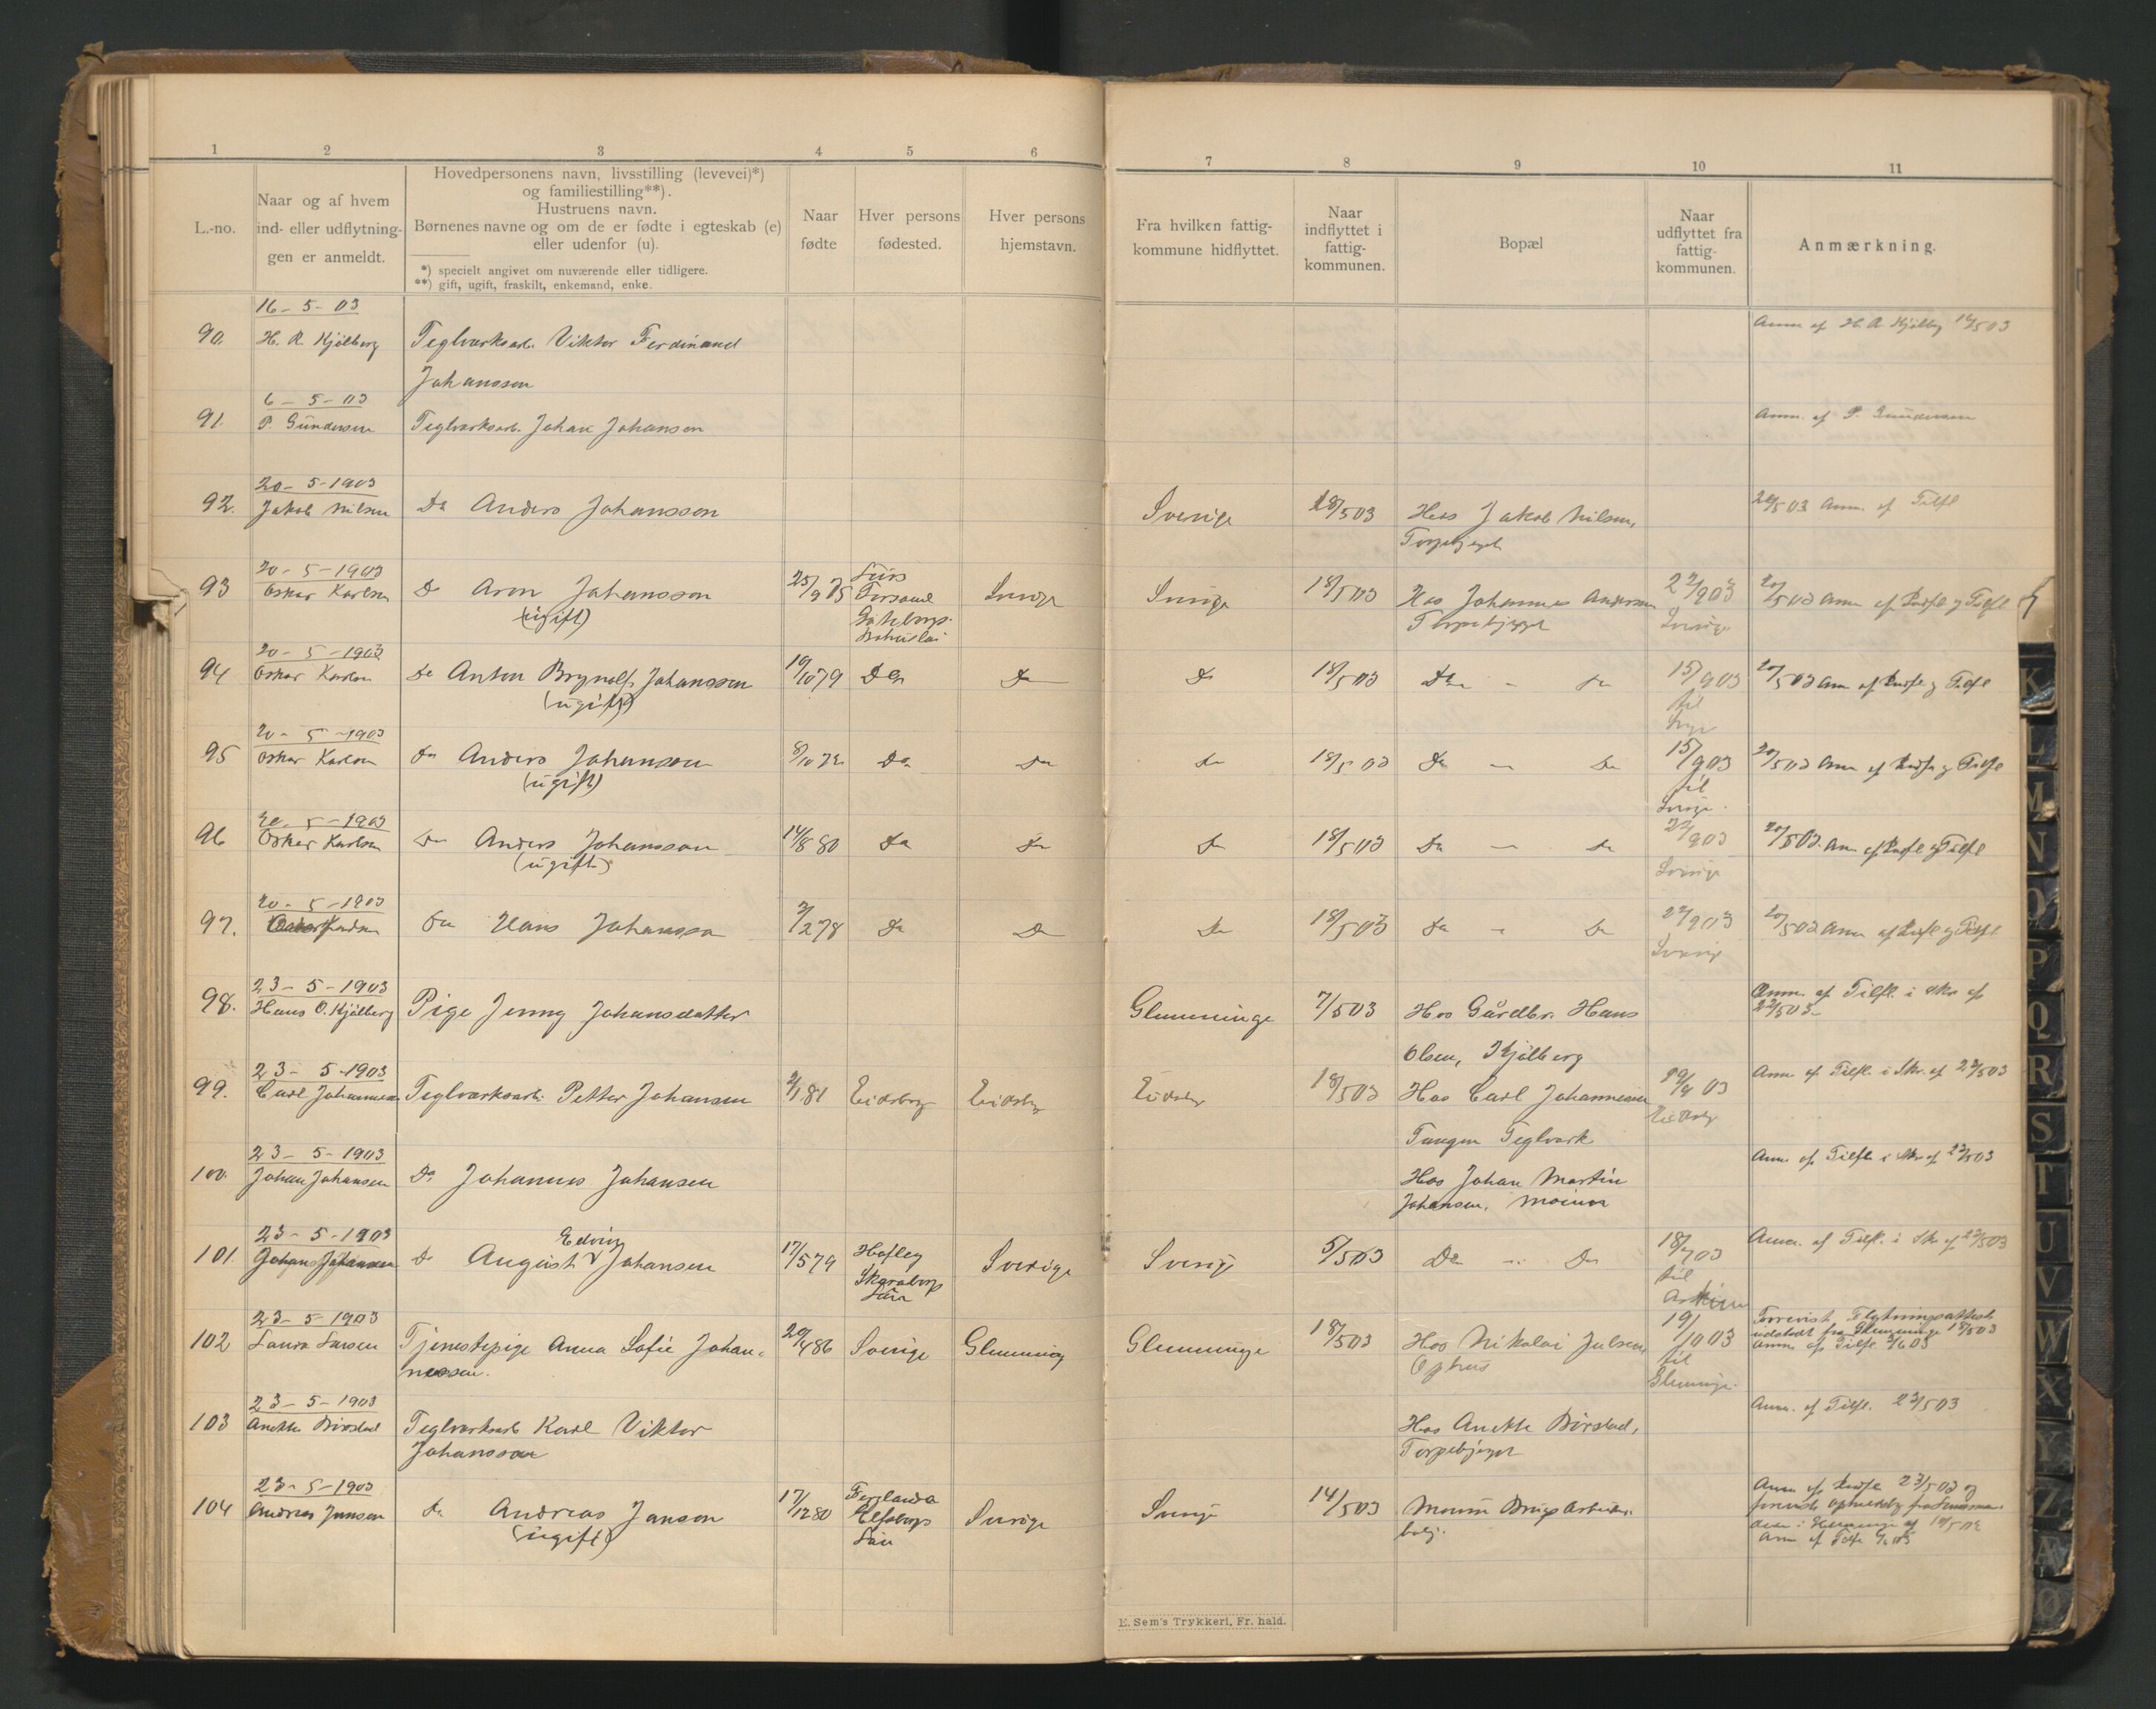 1 2 3 4 5 6 7 8 9 10 11
L.-no.
Naar og af hvem
ind- eller udflytning-
gen er anmeldt.
Hovedpersonens navn, livsstilling (levevei)*)
og familiestilling**).
Hustruens navn.
Børnenes navne og om de er fødte i egteskab (e)
eller udenfor (u).
*) specielt angivet om nuværende eller tidligere.
**) gift, ugift, fraskilt, enkemand, enke.
Naar
fødte
Hver persons
fødested.
Hver persons
hjemstavn.
Fra hvilken fattig-
kommune hidflyttet.
Naar
indflyttet i
fattig-
kommunen.
Bopæl
Naar
udflyttet fra
fattig-
kommunen.
Anmærkning.
16 - 5 - 03
90. H. R. Kjølberg Teglværksarb. Viktor Ferdinand Anm. af H. A. Kjølberg 16/5 03
Johansson
6 - 5 - 03
91. P. Gundersen Teglværksarb. Johan Johansen Anm. af P. Gundersen
20 - 5 - 1903
92. Jakob Nilsen Do Anders Johansson Sverige 18/5 03 Hos Jakob Nilsen, 20/5 03 Anm. af Tilfl
Torpebjerget
20 - 5 - 1903
93 Oskar Karlsen Do Aron Johansson 25/9 75 Sverige Sverige 18/5 03 Hos Johannes Andersen 22/9 03 20/5 03 Anm af Indfl og Tilfl
(ugift) Göteborgs Torpebjerget Sverige
20 - 5 - 1903
94 Oskar Karlsen Do Anton Brynolf Johansson 19/10 79 Do Do Do 18/5 03 Do - Do 15/9 03 20/5 03 Anm af Indfl og Tilfl
(ugift) til
20 - 5 - 1903
95 Oskar Karlsen Do Anders Johansson 8/10 72 Do Do Do 18/5 03 Do - Do 15/9 03 20/5 03 Anm af Indfl og Tilfl
(ugift) til
Sverige
20 - 5 - 1903
96 Oskar Karlsen Do Anders Johansson 14/8 80 Do Do Do 18/5 03 Do - Do 22/9 03 20/5 03. Anm af Indfl og Tilfl
(ugift) Sverige
20 - 5 - 1903
97. Oskar Karlsen Do Hans Johansson 7/2 78 Do Do Do 18/5 03 Do - Do 22/9 03 20/5 03 Anm af Indfl og Tilfl
Sverige
23 - 5 - 1903
98. Hans O. Kjølberg Pige Jenny Johansdatter Glemminge 7/5 03 Hos Gårdbr. Hans Anm. af Tilfl. i Skr. af
22/5 03
Olsen, Kjølberg
23 - 5 - 1903
99. Carl Johannesen Teglværksarb. Petter Johansen 2/1 81 Eidsberg Eidsberg Eidsberg 18/5 03 Hos Carl Johannesen 03 Anm af Tilfl. i Skr. af 22/5 03
Tangen Teglværk Eidsberg
23 - 5 - 1903
100. Johan Johansen Do Johannes Johansen Hos Johan Martin Anm. af Tilfl i Skr af 22/5 03
Johansen, Moinor
23 - 5 - 1903
101. Johan Johansen Do August Edvin Johansen 17/5 79 Sverige Sverige 5/5 03 Do - Do 18/7 03 Anm. af Tilfl. i Skr af 22/5 03
Skaraborgs til
Län Askim
23 - 5 - 1903
102 Laura Larsen Tjenestepige Anna Sofie Johan- 20/4 86 Sverige Glemming Glemminge 18/5 03 Hos Nikolai Julsen, 19/10 03 Forevist Flytningsattest
nessen. Ophus til udstedt fra Glemminge 18/5 03
Glemminge Anm. af Tilfl 03
23 - 5 - 1903
103 Anette Börstad Teglværksarb Karl Viktor Hos Anette Börstad, Anm. af Tilfl. 23/5 03
Johansson Torpebjerget
23 - 5 - 1903
104 Andreas Jansen Do Andreas Janson 17/12 80 Sverige Sverige 14/5 03 Moum Brugs Arbeider- Anm af Indfl 23/5 03 og
(ugift) Elfsborgs bolig.
Län Anm af Tilfl
E. Sem's Trykkeri, Fr. hald.
K
L
M
N
O
P
Q
R
S
T
U
V
W
X
Y
Z
Æ
Ø